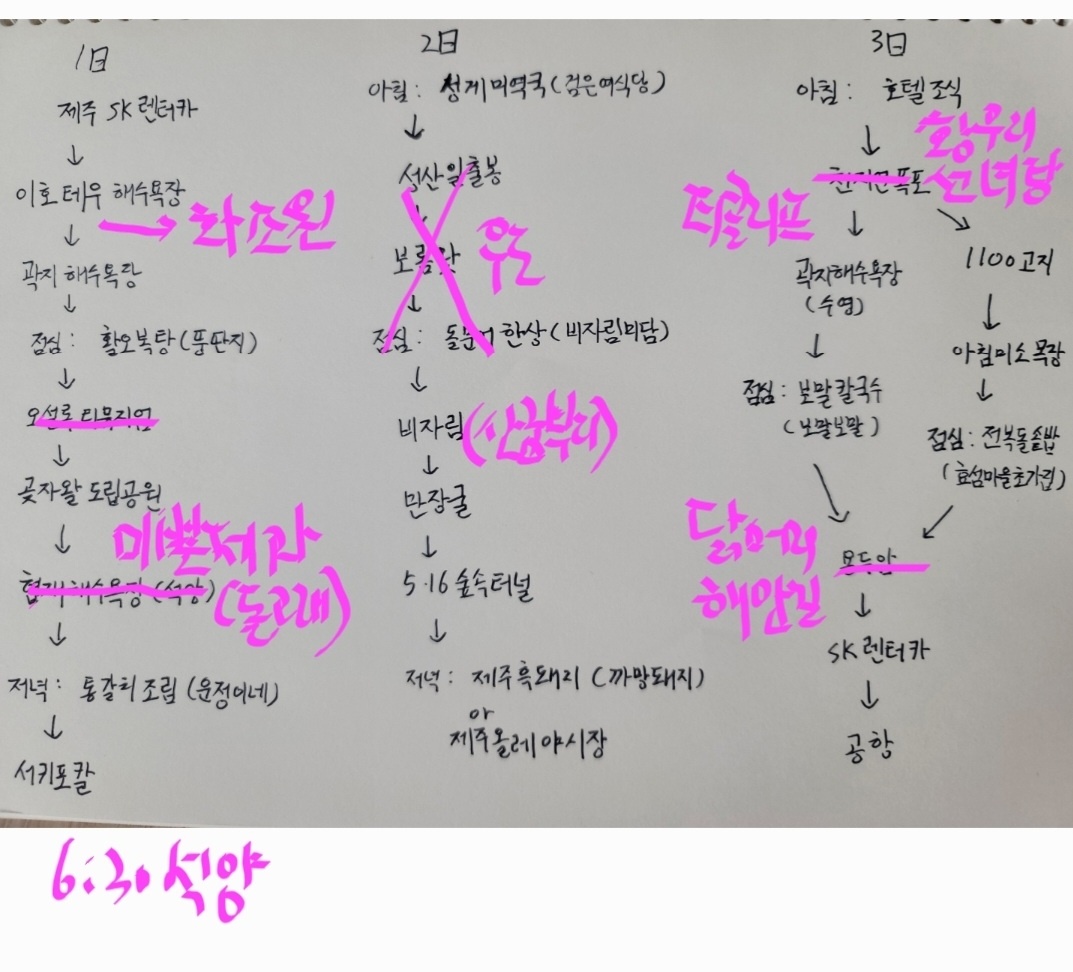 1日
제주 SK렌터카
↓
이호테우 해수욕장
→ 화조원
↓
곽지 해수욕장
↓
점심 : 황오복탕 (뚱딴지)
↓
오설록 티뮤지엄
↓
곶자왈 도립공원
↓
미쁜제과
(돌고래)
협재해수욕장 (석양)
↓
저녁 : 통갈치조림 (운정이네)
↓
서귀포칼
6:30 석양
2日
아침 : 성게미역국 (검은여식당)
↓
성산일출봉
↓
보롬왓
우도
↓
점심 : 돌문어 한상 (비자림미담)
↓
비자림
(산굼부리)
↓
만장굴
↓
5·16 숲속터널
↓
저녁 : 제주흑돼지 (까망돼지)
or
제주올레야시장
3日
아침 : 호텔조식
↓
천지연폭포
황우지
선녀탕
더클리프
↓
곽지해수욕장
(수영)
↓
점심 : 보말칼국수
(보말보말)
1100고지
↓
아침미소목장
↓
점심 : 전복돌솥밥
(효섬마을초가집)
닭머르
해안길
↓
SK렌터카
↓
공항